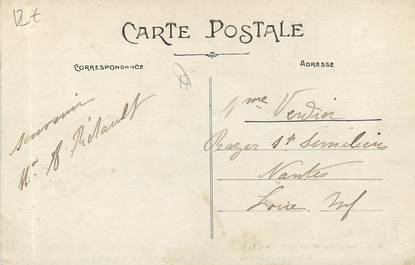 12 €
CARTE POSTALE
CORRESPONDANCE
ADRESSE
souvenir
Mme Verdier
Bazar St Similien
Nantes
Loire Inf